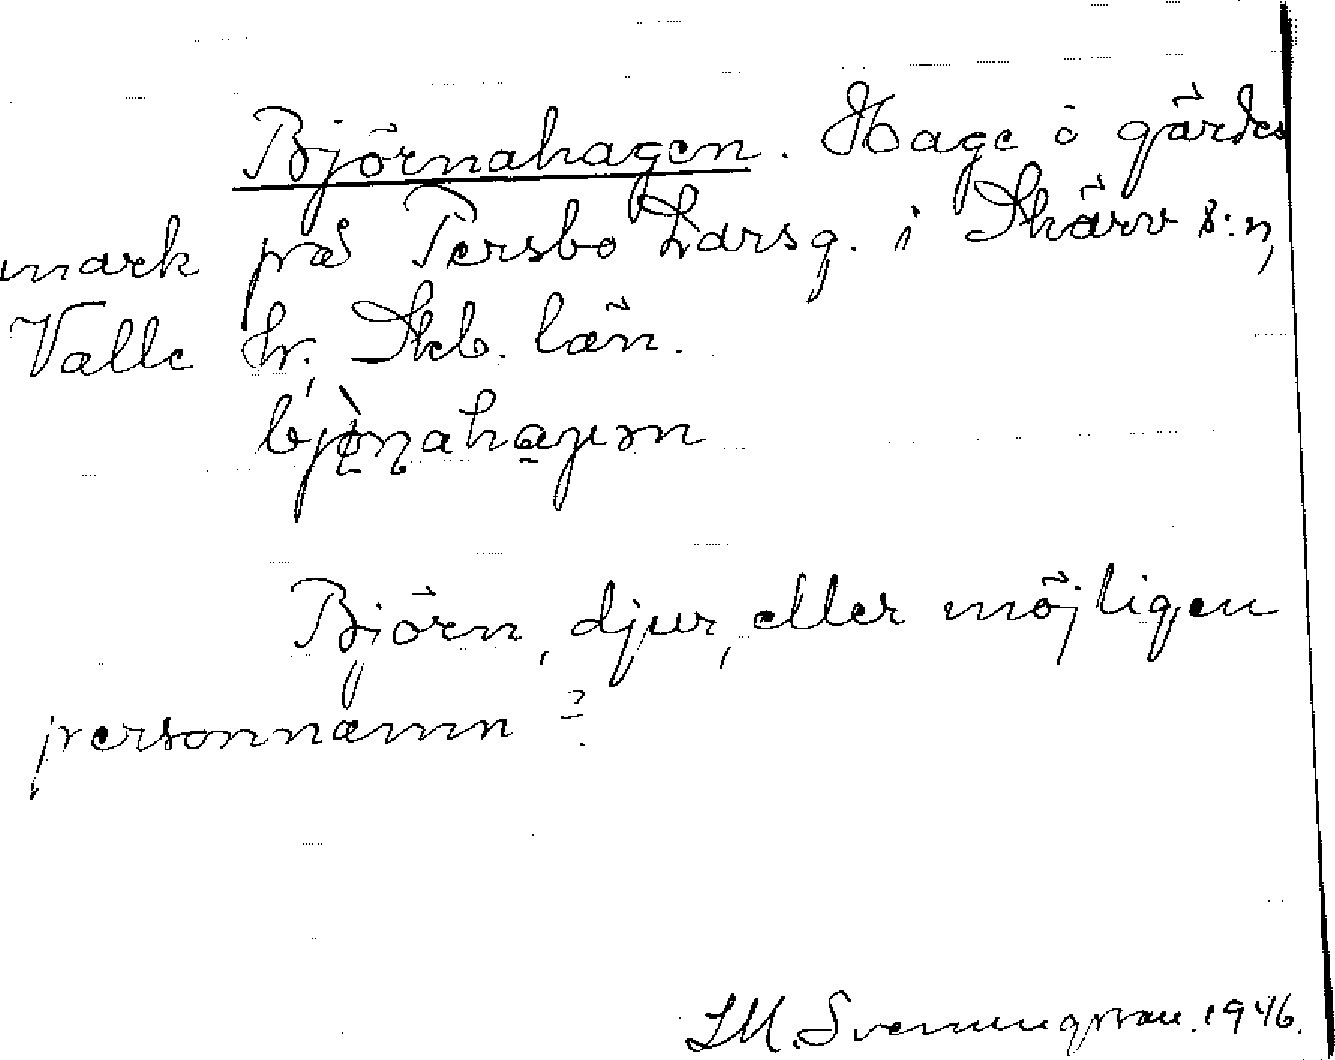 Björnahagen. Hage å gärdes
mark på Persbo Larsg. i Skärv s:n,
Valle hr. Skb. län.
Björn, djur, eller möjligen
personnamn?
S.M. Svenungsson. 1946.